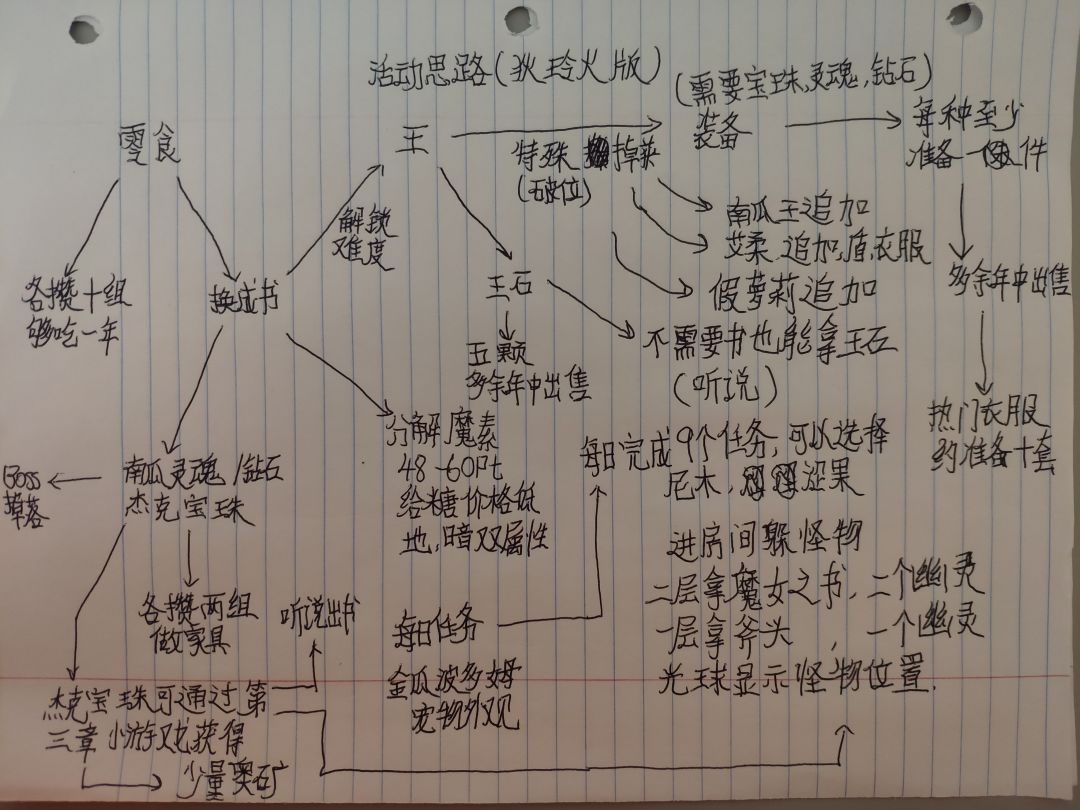 活动思路(狄玲火版)
零食
王
(需要宝珠,灵魂,钻石)
装备
每种至少
准备一件
特殊 掉落
(破位)
解锁
难度
南瓜王追加
艾柔 追加,盾,衣服
假萝莉追加
各攒十组
够吃一年
换成书
王石
五颗
多余年中出售
不需要书也能拿王石
(听说)
多余年中出售
热门衣服
约准备十套
分解魔素
48-60Pt
给糖价格低
地,暗双属性
每日完成9个任务,可以选择
尼木, 涩果
Boss
掉落
南瓜灵魂/钻石
杰克宝珠
各攒两组
做家具
听说出书
每日任务
金瓜波多姆
宠物外观
进房间躲怪物
二层拿魔女之书,二个幽灵
一层拿斧头 ,一个幽灵
光球显示怪物位置.
杰克宝珠可通过第
三章小游戏获得
少量奥矿